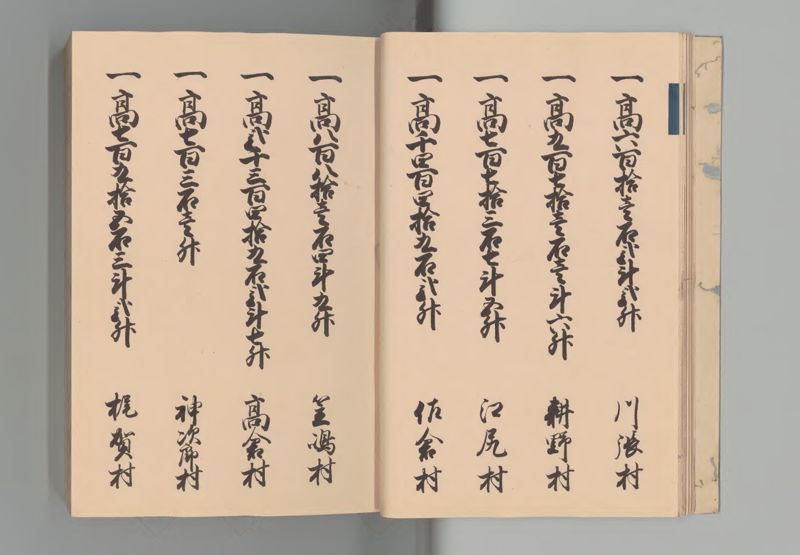 一高六百拾壱石弐斗弐升 川張村
一高五百七拾壱石壱斗六升 耕野村
一高七百七拾三石七斗五升 江尻村
一高千四百四拾九石弐升 佐倉村
一高八百八拾壱石四斗九升 笠嶋村
一高弐千三百四拾九石弐斗七升 高倉村
一高七百三石壱升 神次郎村
一高七百九拾五石三斗弐升 梶賀村